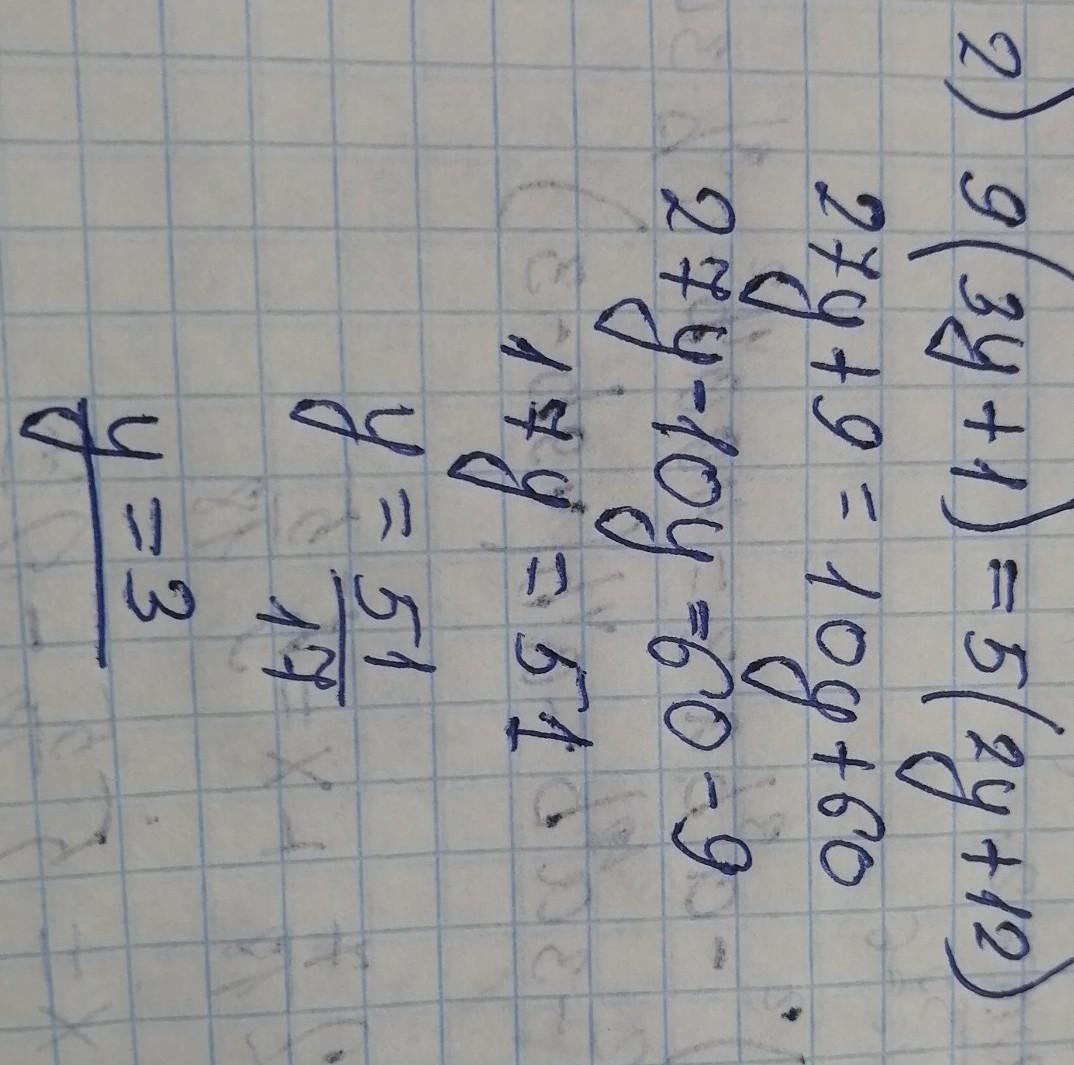 2) 9(3y+1)=5(2y+12)
27y+9=10y+60
27y-10y=60-9
17y=51
y=51/17
y=3